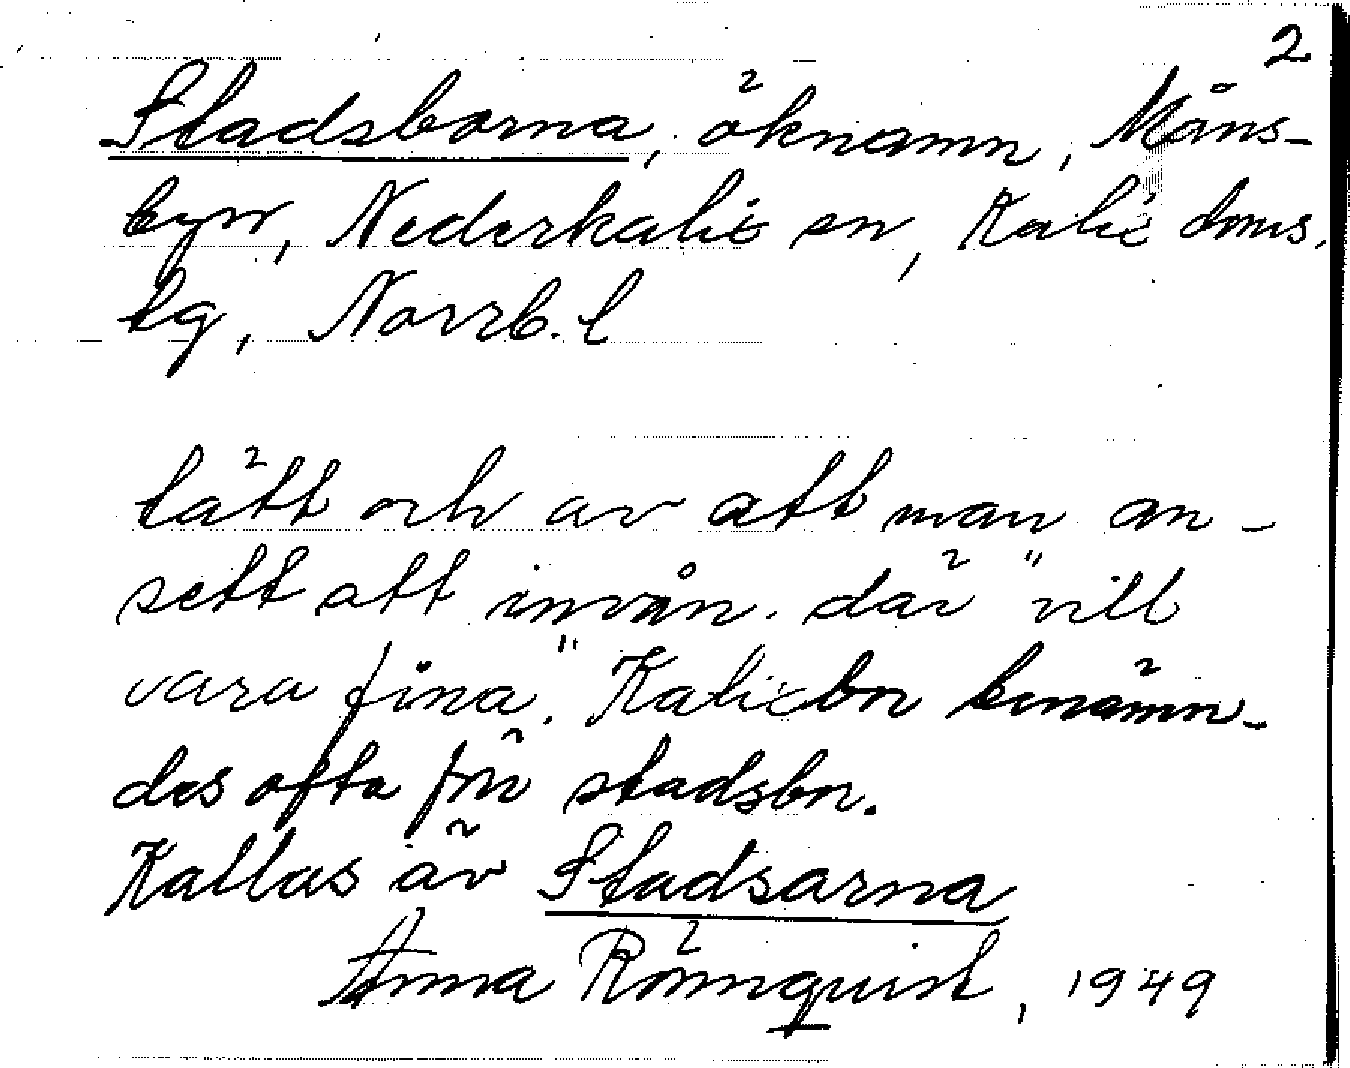 2
Stadsborna, öknamn, Måns-
byn, Nederkalix sn, Kalix doms.
tg, Norrb. l
tätt och av att man an-
sett att invån. där "vill
vara fina". Kalixbn benämn-
des ofta för stadsbn.
Kallas äv Stadsarna
Anna Rönnquist, 1949